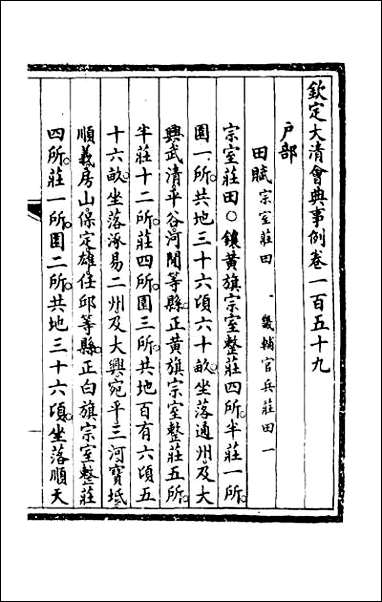 欽定大清會典事例卷一百五十九
戶部
田賦宗室莊田 畿輔官兵莊田一
宗室莊田○鑲黃旗宗室整莊四所。半莊一所。
園一所。共地三十六頃六十畝。坐落通州及大
興武清平谷河閒等縣。正黃旗宗室整莊五所。
半莊十二所。莊四所。園三所。共地百有六頃五
十六畝。坐落涿易二州及大興宛平三河寶坻
順義房山保定雄任邱等縣。正白旗宗室整莊
四所。莊一所。園二所。共地三十六頃。坐落順天